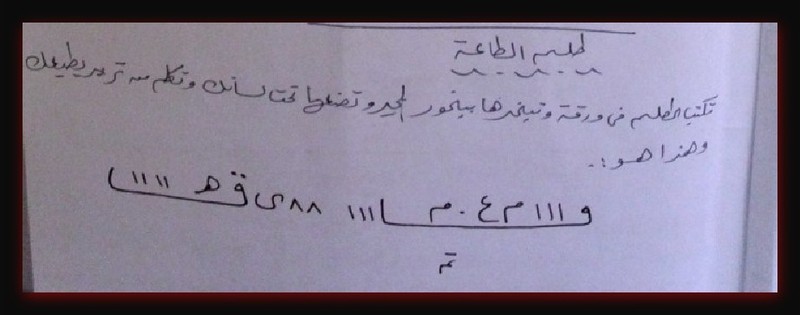 طلسم الطاعة
تكتب الطلسم فى ورقة وتبخرها ببخور الجيد وتضعها تحت لسانك وتكلم من تريد يطيعك
وهذا هو :.
و ااا م ع . م ااا ٨٨ ى ق ه اا اا
تم